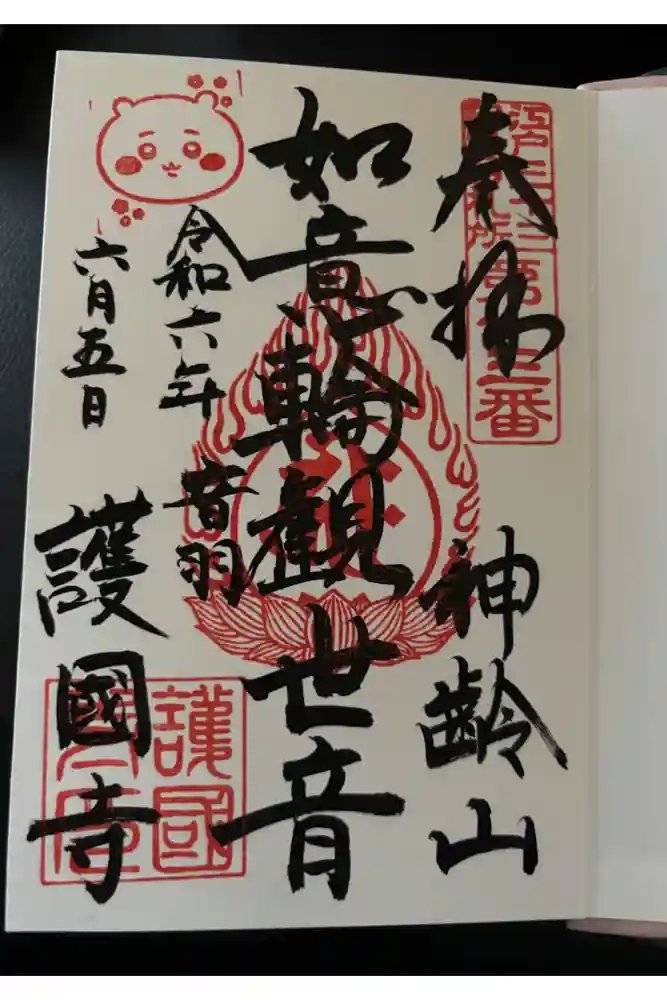 奉拝
江戸三十三番第十三番
神齢山
如意輪觀世音
音羽
令和六年
六月五日
護國寺
護國